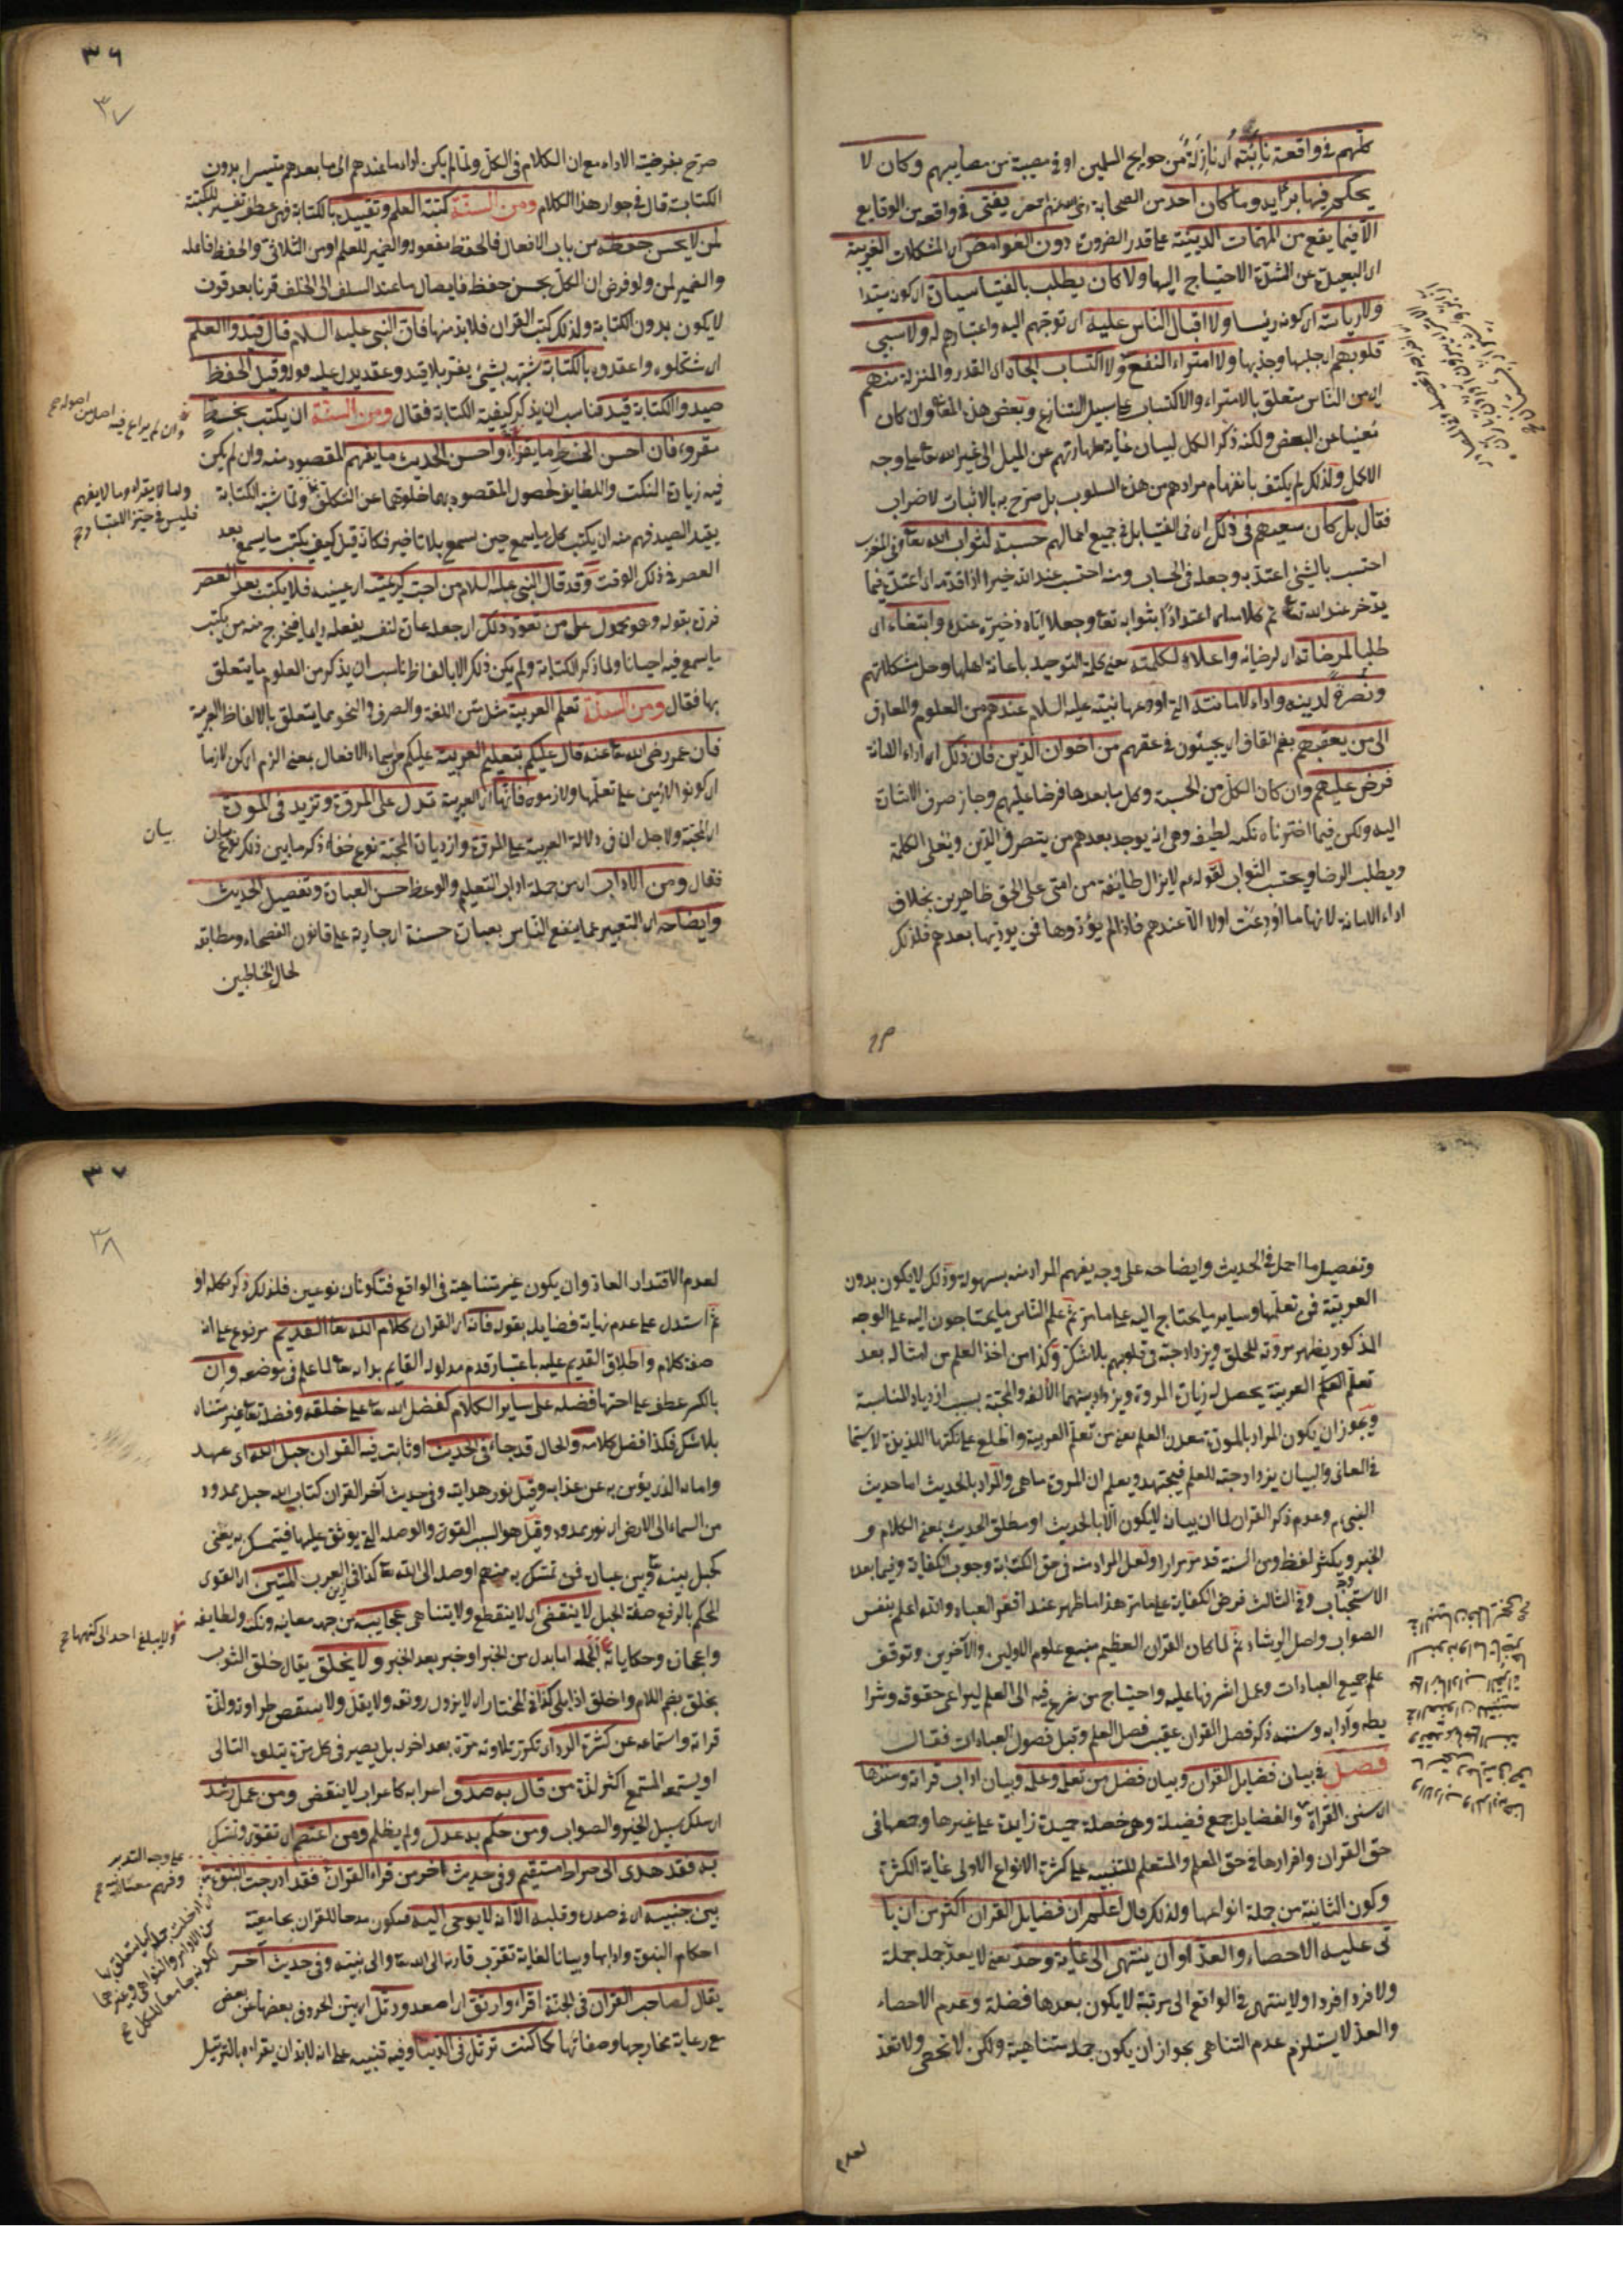 كلهم في واقعة نائبة أي نازلة من حوايج المسلمين او في مصيبة من مصايبهم وكان لا
يحكم فيها برأيه وما كان احد من الصحابة يفتي في واقعة من الوقايع
الا فيما يقع من المهمات الدينية على قدر الضرورة دون الغوامض اى المشكلات الغريبة
اى البعيدة عن الشدة الاحتياج اليها ولا كان يطلب بالفتيا سيادة اى كونه سيدا
ولا رياسة اى كونه رئيسا ولا اقبال الناس عليه اى توجههم اليه واعتبارهم له ولا سبي
قلوبهم اى جلبها وجذبها ولا امتراء النفع ولا اكتساب الجاه اى القدر والمنزلة منهم
اى من الناس متعلق بالامتراء والاكتساب على سبيل التنازع وبعض هذه وان كان
مغنيا عن البعض ولكنه ذكر الكل لبيان غاية طهارتهم عن الميل الى غير الله تعا على وجه
الاكمل ولذلك لم يكتف بانفهام مرادهم من هذه السلوب بل صرح به بالاثبات لا ضراب
فقال بل كان سعيهم في ذلك اى في الفتيا بل في جميع اعمالهم حسبة لثواب الله تعا وفي المغرب
احتسب بالشئ اعتد به وجعله في الحساب ومنه احتسب عند الله خيرا اذا قدمه اى اعتده فيما
يدخر عند الله تع تم كلامه اى اعتدادا بثوابه تعا وجعلا اياه ذخيرة عنده وابتغاء اى
طلبا لمرضاته اى لرضائه واعلاء لكلمته يعني كلمة التوحيد باعانة اهلها وحل مشكلاتهم
ونصرة لدينه واداء لامانته التي اودعها نبيه عليه السلام عندهم من العلوم والمعارف
الى من يعقبهم بضم القاف اى يجيئون في عقبهم من اخوان الدين فان ذلك اى اداء الامانة
فرض عليهم وان كان الكل من الحسبة وكل ما بعدها فرضا عليهم وجاز صرف الاشارة
اليه ولكن فيما اخترناه نكتة لطيفة وهي انه يوجد بعدهم من ينصر في الدين ويعلى الكلمة
ويطلب الرضا ويحتسب الثواب لقوله عم لا يزال طائفة من امتى على الحق ظاهرين بخلاف
اداء الامانة لانها ما اودعت اولا الا عندهم فاذا لم يؤدوها فمن يوديها بعدهم فلذلك
صرح
٣٦
٣٧
صرح بفرضية الاداء مع ان الكلام في الكل ولما لم يكن اداء ما عندهم الى ما بعدهم متيسرا بدون
الكتابة قال في جوار هذا الكلام ومن السنة كتبة العلم وتقييده بالكتابة فهى عطف تفسير للكتبة
لمن لا يحسن حفظه من باب الافعال فالحفظ مفعوله والضمير للعلم او من الثلاثي والحفظ فاعله
والضمير لمن ولو فرض ان الكل يحسن حفظه فايصال ما عند السلف الى الخلف قرنا بعد قرن
لا يكون بدون الكتابة ولذلك كتب القران فلا بد منها فان النبي عليه السلام قال قيدوا العلم
اى شكلوه واعقدوه بالكتابة شبهه بشئ يفر بلا قيد وعقد يدل عليه قوله وقيل الحفظ
صيد والكتابة قيد فناسب ان يذكر كيفية الكتابة فقال ومن السنة ان يكتب بخط
مقروء فان احسن الخط ما يقرأ واحسن الحديث ما يفهم المقصود منه وان لم يكن
فيه زيادة النكت واللطايف لحصول المقصود بهما خلوهما عن التكلف ولما شبه الكتابة
بقيد الصيد فهم منه ان يكتب كل ما يسمع حين سمع بلا تاخير فكأنه قيل كيف يكتب ما يسمع بعد
العصر في ذلك الوقت وقد قال النبي عليه السلام من احب كريمتيه اى عينيه فلا يكتب بعد العصر
فرق بقوله وهو محمول على من تعود ذلك اى جعله عادة لنفسه يفعله دايما فيخرج منه من يكتب
ما يسمع فيه احيانا ولما ذكر الكتابة ولم يكن ذلك الا بالفاظ ناسب ان يذكر من العلوم ما يتعلق
بها فقال ومن السنة تعلم العربية مثل متن اللغة والصرف والنحو مما يتعلق بالالفاظ العربية
فان عمر رضى الله تعا عنه قال عليكم بتعلم العربية عليكم من اسماء الافعال بمعنى الزم اى كن لازما
اى كونوا لازمين على تعلمها ولازموه فانها اى العربية تدل على المروة وتزيد في المودة
اى المحبة ولاجل ان في دلالة العربية على المروة وازدياد المحبة نوع خفاء ذكر ما يبين ذلك نوع بيان
فقال ومن الاداب اى من جملة اداب التعليم والوعظ حسن العبارة وتفصيل الحديث
وايضاحه اى التعبير عما ينفع الناس بعبارة حسنة اى جارية على قانون الفصحاء ومطابقة
لحال المخاطبين
وان لم يراع فيه اصل من اصوله صح
واما لا يقرأ وما لا يفهم
فليس في حيز الاعتبار صح
بيان
وتفصيل ما اجمل في الحديث وايضاحه على وجه يفهم المراد منه بسهولة وذلك لا يكون بدون
العربية فمن تعلمها وساير ما يحتاج اليه على ما مر ثم علم الناس ما يحتاجون اليه على الوجه
المذكور يظهر مروته للخلق ويزداد حبته في قلوبهم بلا شك وكذا من اخذ العلم من امثاله بعد
تعلم العلم العربية يحصل له زيادة المروة ويزداد بينهما الالفة والمحبة بسبب ازدياد المناسبة
ويجوز ان يكون المراد بالمودة مودة العلم يعني من تعلم العربية واطلع على نكتها اللذيذة لا سيما
في المعانى والبيان يزداد حبته للعلم فيجتهد ويعلم ان المروة ما هي والمراد بالحديث اما حديث
النبي م وعدم ذكر القران لما ان بيانه لا يكون الا بالحديث او مطلق الحديث بمعنى الكلام و
الخبر ويكثر لفظ ومن السنة قد مر مرارا ولعل المراد منه في حق الكتابة وجوب الكفاية وفيما بعده
الاستحباب وفي الثالث فرض الكفاية على ما مر هذا ما ظهر عند افقر العباد والله اعلم بنفس
الصواب واصل الرشاد ثم لما كان القران العظيم منبع علوم الاولين والآخرين وتوقف
علم جميع العبادات وعمل اشرفها عليه واحتياج من شرع فيه الى العلم ليراعى حقوقه وشرا
يطه وآدابه وسننه ذكر فصل القران عقيب فصل العلم وقبل فصول العبادات فقال
فصل في بيان فضايل القران وبيان فضل من تعلم وعلمه وبيان اداب قراته وسننها
اى سنن القراة والفضايل جمع فضيلة وهي خصلة حميدة زايدة على غيرها وجمعها في
حق القران وافرادها في حق المعلم والمتعلم للتنبيه على كثرة الانواع الاولى غاية الكثرة
وكون الثانية من جملة انواعها ولذلك قال اعلم ان فضايل القران اكثر من ان يا
تى عليه الاحصاء والعد او ان ينتهى الى غاية وحد يعني لا يعد جملة جملة
ولا فردا فردا ولا ينتهى في الواقع الى مرتبة لا يكون بعدها فضلة وعدم الاحصاء
والعد لا يستلزم عدم التناهى بجواز ان يكون جملة متناهية ولكن لا تحصى ولا تعد
لعدم
٣٧
٣٨
لعدم الاقتدار العادة وان يكون غير متناهية في الواقع فتكونان نوعين فلذلك ذكر كلمة او
ثم استدل على عدم نهاية فضايله بقوله فانه اى القران كلام الله تعا القديم مرفوع على انه
صفة كلام واطلاق القديم عليه باعتبار قدم مدلوله القايم بذاته تعا لما علم في موضعه وان
بالكسر عطف على اختها فضله على ساير الكلام كفضل الله تعا على خلقه وفضله تعا غير متناه
بلا شك فكذا فضل كلامه والحال قد جاء في الحديث او ثابت فيه القران حبل الله اى عهد
وامانه الذى يؤمن به عن عذابه وقيل نور هدايته وفي حديث آخر القران كتاب الله حبل ممدود
من السماء الى الارض اى نور ممدود وقيل هو السبب القوى والوصلة التي يوثق عليها فيتمسك به يعني
كحبل بينه تع وبين عباده فمن تمسك به منهم اوصله الى الله تعا كذا في العرب المتين اى القوى
المحكم بالرفع صفة الحبل لا ينقضى اى لا ينقطع ولا يتناهى عجايبه من جهة معانيه ونكته ولطايفه
واعجازه وحكاياته الجملة اما بدل من الخبر او خبر بعد الخبر ولا يخلق يقال خلق الثوب
يخلق بضم اللام واخلق اذا بلى كذا في المختار اى لا يزول رونقه ولا يقل ولا ينتقص طراوته ولذة
قراته واستماعه عن كثرة الرد اى تكرر تلاوته مرة بعد اخرى بل يصير في كل مرة يتلوه التالى
او يستمعه المستمع اكثر لذة من قال به صدق اعرابه كاعراب لا ينقضى ومن عمل رشد
اى سلك سبيل الخير والصواب ومن حكم به عدل ولم يظلم ومن اعتصم اى تقوى وتمسك
به فقد هدى الى صراط مستقيم وفي حديث اخر من قراء القران فقد ادرجت النبوة
بين جنبيه اى في صدره وقلبه الا انه لا يوحى اليه فيكون مدحا للقران بجامعية
احكام النبوة وادابها وبيانا لغاية تقرب قاريه الى الله تعا والى نبيه وفي حديث آخر
يقال لصاحب القران في الجنة اقراء وارتق اى اصعد ورتل اى بين الحروف بعضها عن بعض
مع رعاية مخارجها وصفاتها كما كنت ترتل في الدنيا وفيه تنبيه على انه لا بد ان يقراءه بالترتيل
ولا يبلغ احد الى كنهها صح
على وجه التدبر
وفهم معانيه صح